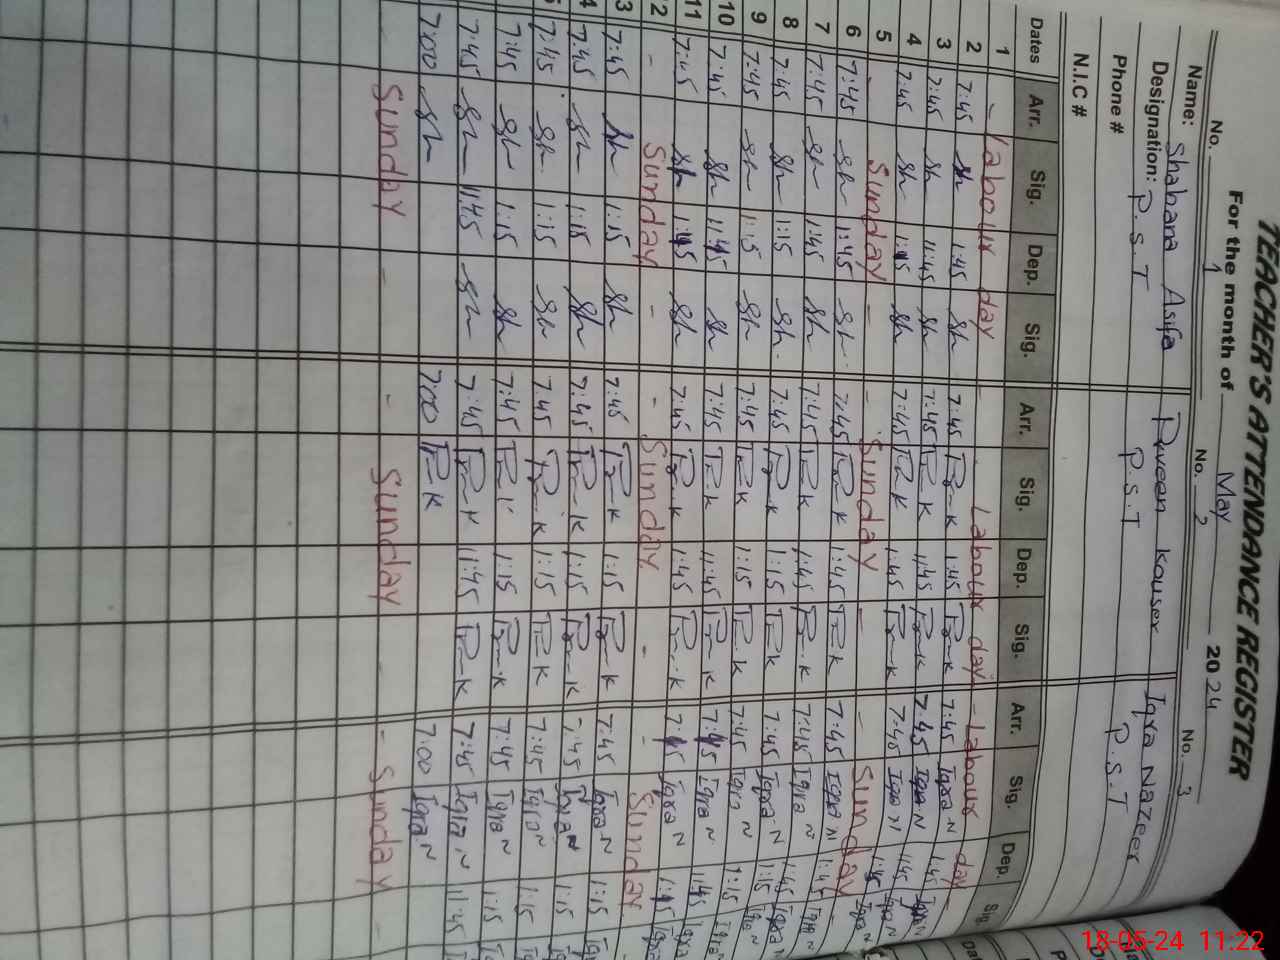 TEACHER'S ATTENDANCE REGISTER
For the month of May 2024
No. 1 No. 2 No. 3
Name: Shabana Asifa Parveen Kouser Iqra Nazeer
Designation: P.S.T P.S.T P.S.T
Phone #
N.I.C #
Dates Arr. Sig. Dep. Sig. Arr. Sig. Dep. Sig. Arr. Sig. Dep. Sig.
1 - Labour day Labour day - Labour day
2 7:45 Sh 1:45 Sh 7:45 P-K 1:45 P-K 7:45 Iqra N 1:45 Iqra N
3 7:45 Sh 11:45 Sh 7:45 P-K 11:45 P-K 7:45 Iqra N 11:45 Iqra N
4 7:45 Sh 1:45 Sh 7:45 P-K 1:45 P-K 7:45 Iqra N 1:45 Iqra N
5 - Sunday - - Sunday - - Sunday -
6 7:45 Sh 1:45 Sh 7:45 P-K 1:45 P-K 7:45 Iqra N 1:45 Iqra N
7 7:45 Sh 1:45 Sh 7:45 P-K 1:45 P-K 7:45 Iqra N 1:45 Iqra N
8 7:45 Sh 1:15 Sh 7:45 P-K 1:15 P-K 7:45 Iqra N 1:15 Iqra N
9 7:45 Sh 1:15 Sh 7:45 P-K 1:15 P-K 7:45 Iqra N 1:15 Iqra N
10 7:45 Sh 11:45 Sh 7:45 P-K 11:45 P-K 7:45 Iqra N 11:45 Iqra
11 7:45 Sh 1:45 Sh 7:45 P-K 1:45 P-K 7:45 Iqra N 1:45 Iqra
12 - Sunday - - Sunday - - Sunday
3 7:45 Sh 1:15 Sh 7:45 P-K 1:15 P-K 7:45 Iqra N 1:15
4 7:45 Sh 1:15 Sh 7:45 P-K 1:15 P-K 7:45 Iqra N 1:15
7:45 Sh 1:15 Sh 7:45 P-K 1:15 P-K 7:45 Iqra N 1:15
7:45 Sh 1:15 Sh 7:45 P-K 1:15 P-K 7:45 Iqra N 1:15
7:45 Sh 11:45 Sh 7:45 P-K 11:45 P-K 7:45 Iqra N 11:45
7:00 Sh 7:00 P-K 7:00 Iqra N
- Sunday - - Sunday - - Sunday
18-05-24 11:22